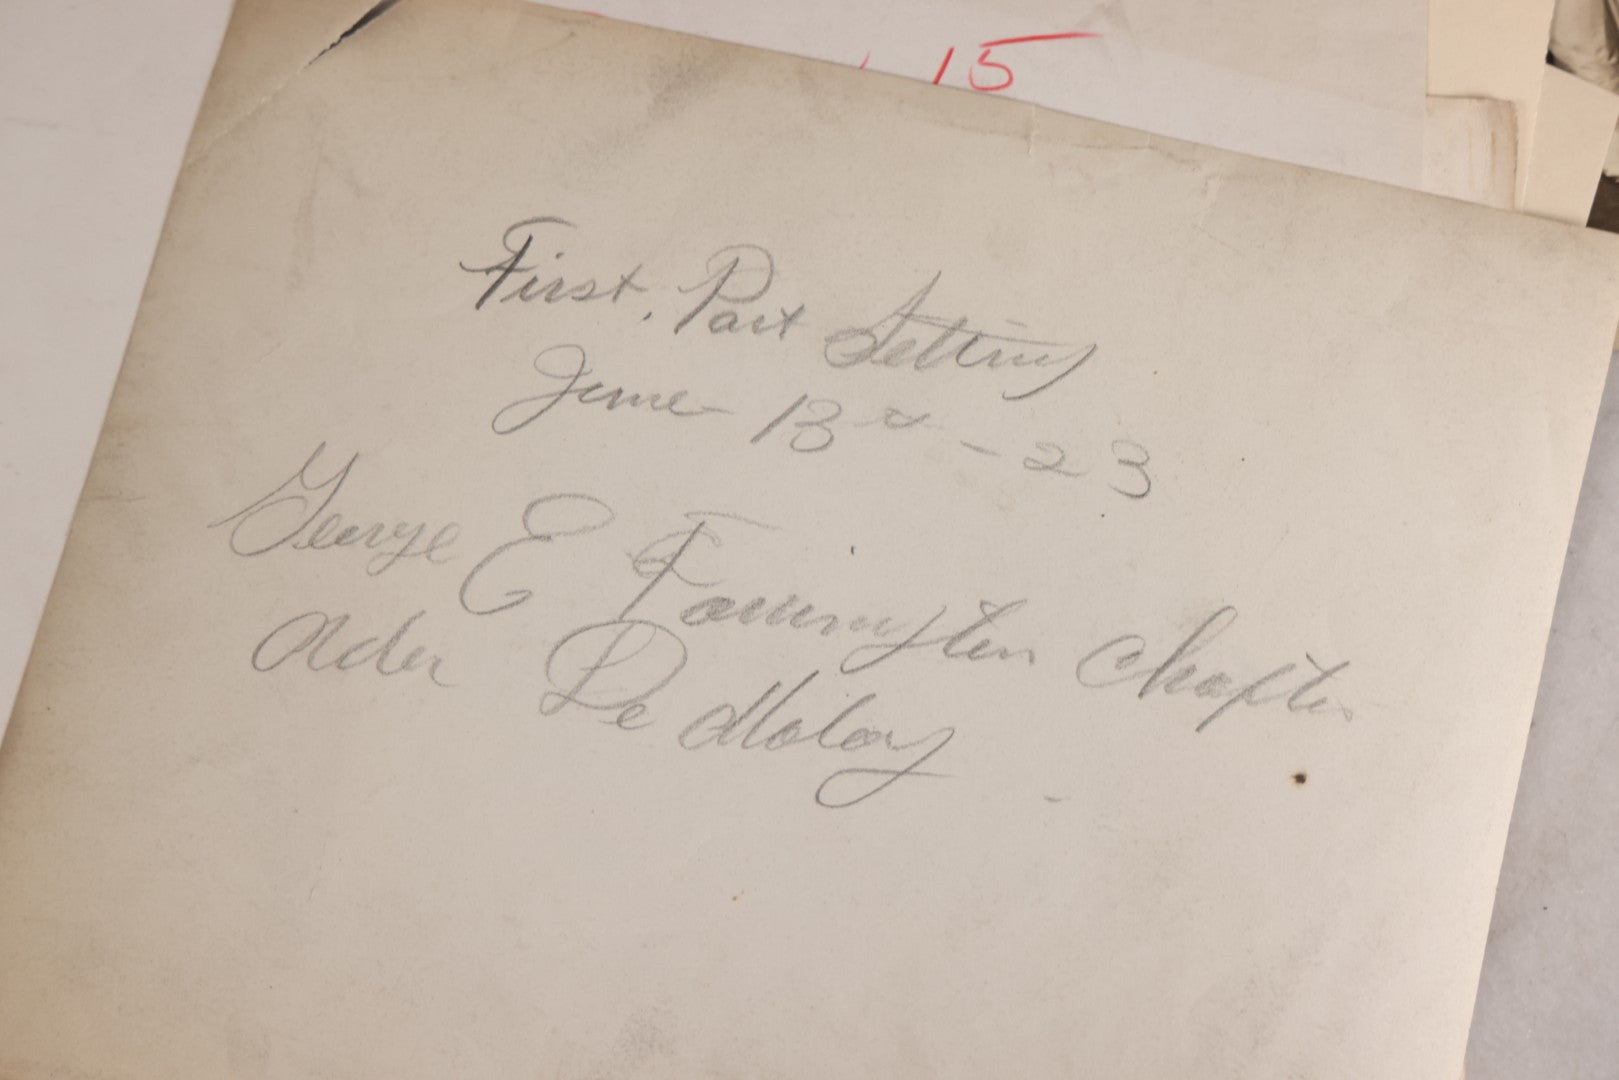 15
First, Part Setting
June 13 - 23
George E Farrington Chapter
Order De Molay